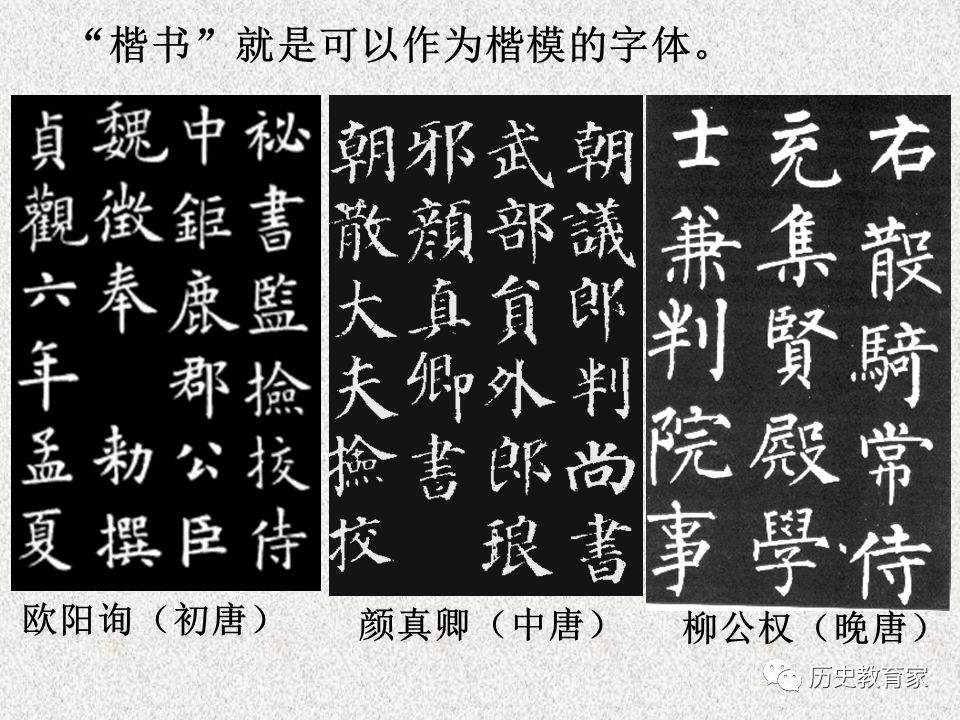 “楷书”就是可以作为楷模的字体。
祕書監撿挍侍
中鉅鹿郡公臣
魏徵奉 勑撰
貞觀六年孟夏
欧阳询（初唐）
朝議郎判尚書
武部貟外郎琅
邪顏真卿書
朝散大夫撿挍
颜真卿（中唐）
右散騎常侍
充集賢殿學
士兼判院事
柳公权（晚唐）
历史教育家